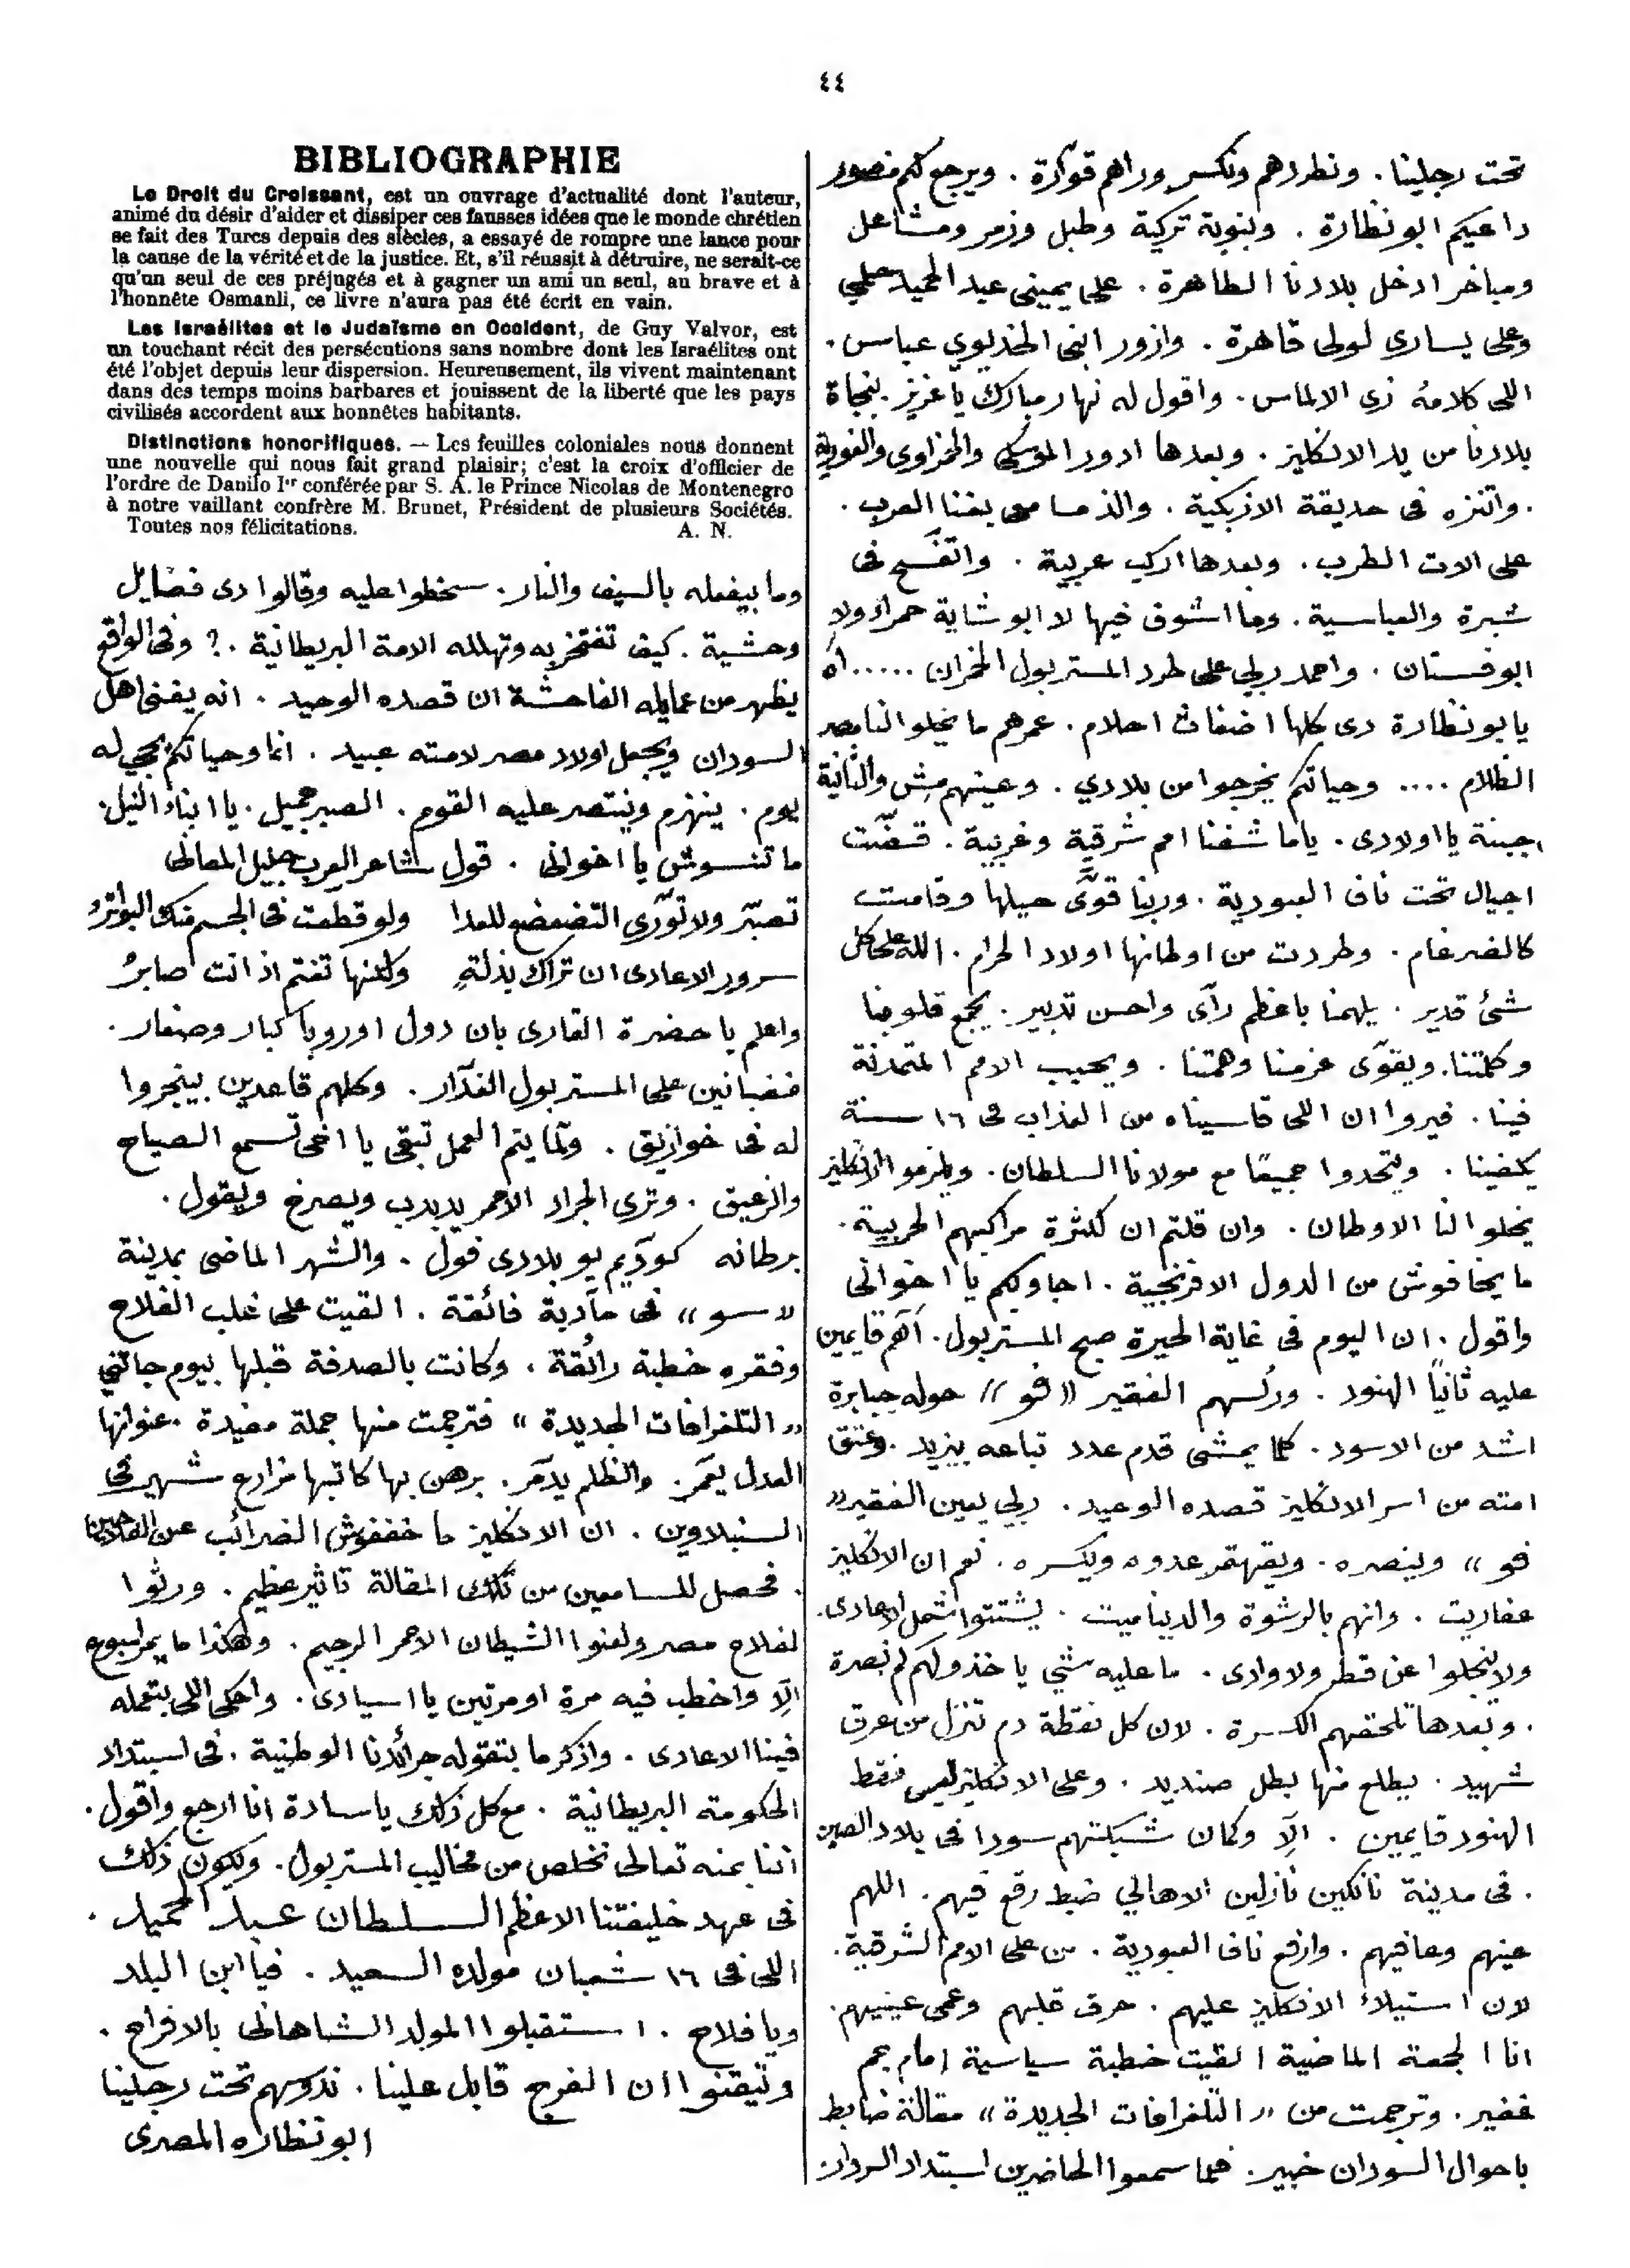 ٤٤
تحت رجلينا . ونطردهم ونكسر وراهم قوّارة . ويرجع لكم منصور
داعيكم ابو نظارة . وبنوبة تركية وطبل وزمر ومشاعل
ومباخر ادخل بلادنا الطاهرة . على يمينى عبد الحميد حلمي
وعلى يسارى لولى قاهرة . وازور افى الخديوي عباس .
اللى كلامه زى الالماس . واقول له نهار مبارك يا عزيز . بنجاة
بلادنا من يد الانكليز . وبعدها ادور الموسكى والحمزاوى والغورية
. واتنزه فى حديقة الازبكية . والذ مسامعى بغنا العرب .
على الات الطرب . وبعدها اركب عربية . واتفسّح فى
شبرة والعباسية . وما اشوف فيها لا ابو شاية حمراء ولا
ابو فستان . واحمد ربي على طرد المستر بول الخمران ..... اه
يا بو نظارة دى كلها اضغاث احلام . عمرهم ما يخلوا لنا مصر
الظلام .... وحياتكم يخرجوا من بلادي . وعينهم مِش والتانية
جبنة يا اولادى . ياما شفنا امم شرقية وغربية . قضّت
اجيال تحت ناف العبودية . وربنا قوَّى حيلها وقامت
كالضرغام . وطردت من اوطانها اولاد الحرام . الله على كل
شئ قدير . يلهمنا باعظم رآى واحسن تدبير . يجمع قلوبنا
وكلمتنا . ويقوّى عزمنا وهمتنا . ويحبب الامم المتمدنة
فينا . فيروا ان اللى قاسيناه من العذاب فى ١٦ سنة
يكفينا . ويتحدوا جميعًا مع مولانا السلطان . ويلزموا الانكليز
يخلوا لنا الاوطان . وان قلتم ان لكثرة مراكبهم الحربية .
ما يخافوش من الدول الافرنجية . اجاوبكم يا اخوانى
واقول . ان اليوم فى غاية الحيرة صبح المستر بول . آهم قايمين
عليه ثانيًا الهنود . ورئسهم الفقير « فو » حوله جبابرة
اشد من الاسود . كلما يمشى قدم عدد تباعه بيزيد . وعتق
امته من اسر الانكليز قصده الوحيد . ربي يعين الفقير «
فو » وينصره . ويقهر عدوه ويكسره . نعم ان الانكليز
عفاريت . وانهم بالرشوة والديناميت . يشتتوا شمل الاعادى .
ولا ينجلوا عن قطر ولا وادى . ما عليه شي ياخذولهم لم نصرة
. وبعدها تلحقهم الكسرة . لان كل نقطة دم تنزل من عرق
شهيد . يطلع منها بطل صنديد . وعلى الانكليز ليس فقط
الهنود قايمين . الّا وكان شبكتهم سودا فى بلاد الصين
. فى مدينة نانكين نازلين الاهالي ضبط رقع فيهم . اللهم
عينهم وعافيهم . وارفع ناف العبودية . من على الامم الشرقية .
لان استيلاء الانكليز عليهم . حرق قلبهم وعمى عينيهم .
انا الجمعة الماضية القيت خطبة سياسية امام جم
غفير . وترجمت من « التلغرافات الجديدة » مقالة ضابط
باحوال السودان خبير . فلما سمعوا الحاضرين استبداد السردار
BIBLIOGRAPHIE
Le Droit du Croissant, est un ouvrage d'actualité dont l'auteur,
animé du désir d'aider et dissiper ces fausses idées que le monde chrétien
se fait des Turcs depuis des siècles, a essayé de rompre une lance pour
la cause de la vérité et de la justice. Et, s'il réussit à détruire, ne serait-ce
qu'un seul de ces préjugés et à gagner un ami un seul, au brave et à
l'honnête Osmanli, ce livre n'aura pas été écrit en vain.
Les Israélites et le Judaïsme en Occident, de Guy Valvor, est
un touchant récit des persécutions sans nombre dont les Israélites ont
été l'objet depuis leur dispersion. Heureusement, ils vivent maintenant
dans des temps moins barbares et jouissent de la liberté que les pays
civilisés accordent aux honnêtes habitants.
Distinctions honorifiques. — Les feuilles coloniales nous donnent
une nouvelle qui nous fait grand plaisir; c'est la croix d'officier de
l'ordre de Danilo Ier conférée par S. A. le Prince Nicolas de Montenegro
à notre vaillant confrère M. Brunet, Président de plusieurs Sociétés.
Toutes nos félicitations. A. N.
وما بيفعله بالسيف والنار . سخطوا عليه وقالوا دى فضايل
وحشية . كيف تفتخر به وتهلله الامة البريطانية . ? وفى الواقع
يظهر من عمايله الفاحشة ان قصده الوحيد . انه يفنى اهل
السودان ويجعل اولاد مصر لامته عبيد . انما وحياتكم يجي له
يوم . ينهزم وينتصر عليه القوم . الصبر جميل . يا ابناء النيل .
ما تنسوش يا اخوانى . قول شاعر العرب جليل المعانى
تصبّر ولا تورّى التضعضع للعدا ولو قطعت فى الجسم منك البواترُ
سرور الاعادى ان تراك بذلةٍ ولكنها تغتم اذ انت صابرُ
واعلم يا حضرة القارى بان دول اوروبا كبار وصغار .
غضبانين على المستر بول الغدّار . وكلهم قاعدين بينجروا
له فى خوازيق . ولمّا يتم العمل تبقى يا اخى تسمع الصياح
والزعيق . وترى الجراد الاحمر يدبدب ويصرخ ويقول .
برطانه كودّيم يو بلادى فول . والشهر الماضى بمدينة
« سو » فى مآدبة فائقة . القيت على غلب الفلاح
وفقره خطبة رائقة . وكانت بالصدفة قبلها بيوم جاتني
« التلغرافات الجديدة » فترجمت منها جملة مفيدة . عنوانها
العدل يعمّر . والظلم يدمّر . برهن بها كاتبها مزارع شهير فى
السنبلاوين . ان الانكليز ما خففوش الضرائب عن الفلاحين
. فحصل للسامعين من تلك المقالة تاثير عظيم . ورثوا
لفلاح مصر ولعنوا الشيطان الاحمر الرجيم . وهكذا ما يمر اسبوع
الّا واخطب فيه مرة او مرتين يا اسيادى . واحكى اللى بتعمله
فينا الاعادى . واذكر ما بتقوله جرائدنا الوطنية . فى استبداد
الحكومة البريطانية . مع كل ذلك يا سادة انا ارجع واقول .
اننا بمنه تعالى نخلص من مخاليب المستر بول . ويكون ذلك
فى عهد خليفتنا الاعظم السلطان عبد الحميد .
اللى فى ١٦ شعبان مولده السعيد . فيا ابن البلد
ويا فلاح . استقبلوا المولد الشاهانى بالافراح .
وتيقنوا ان الفرج قابل علينا . ندوسهم تحت رجلينا
ابو نظاره المصرى